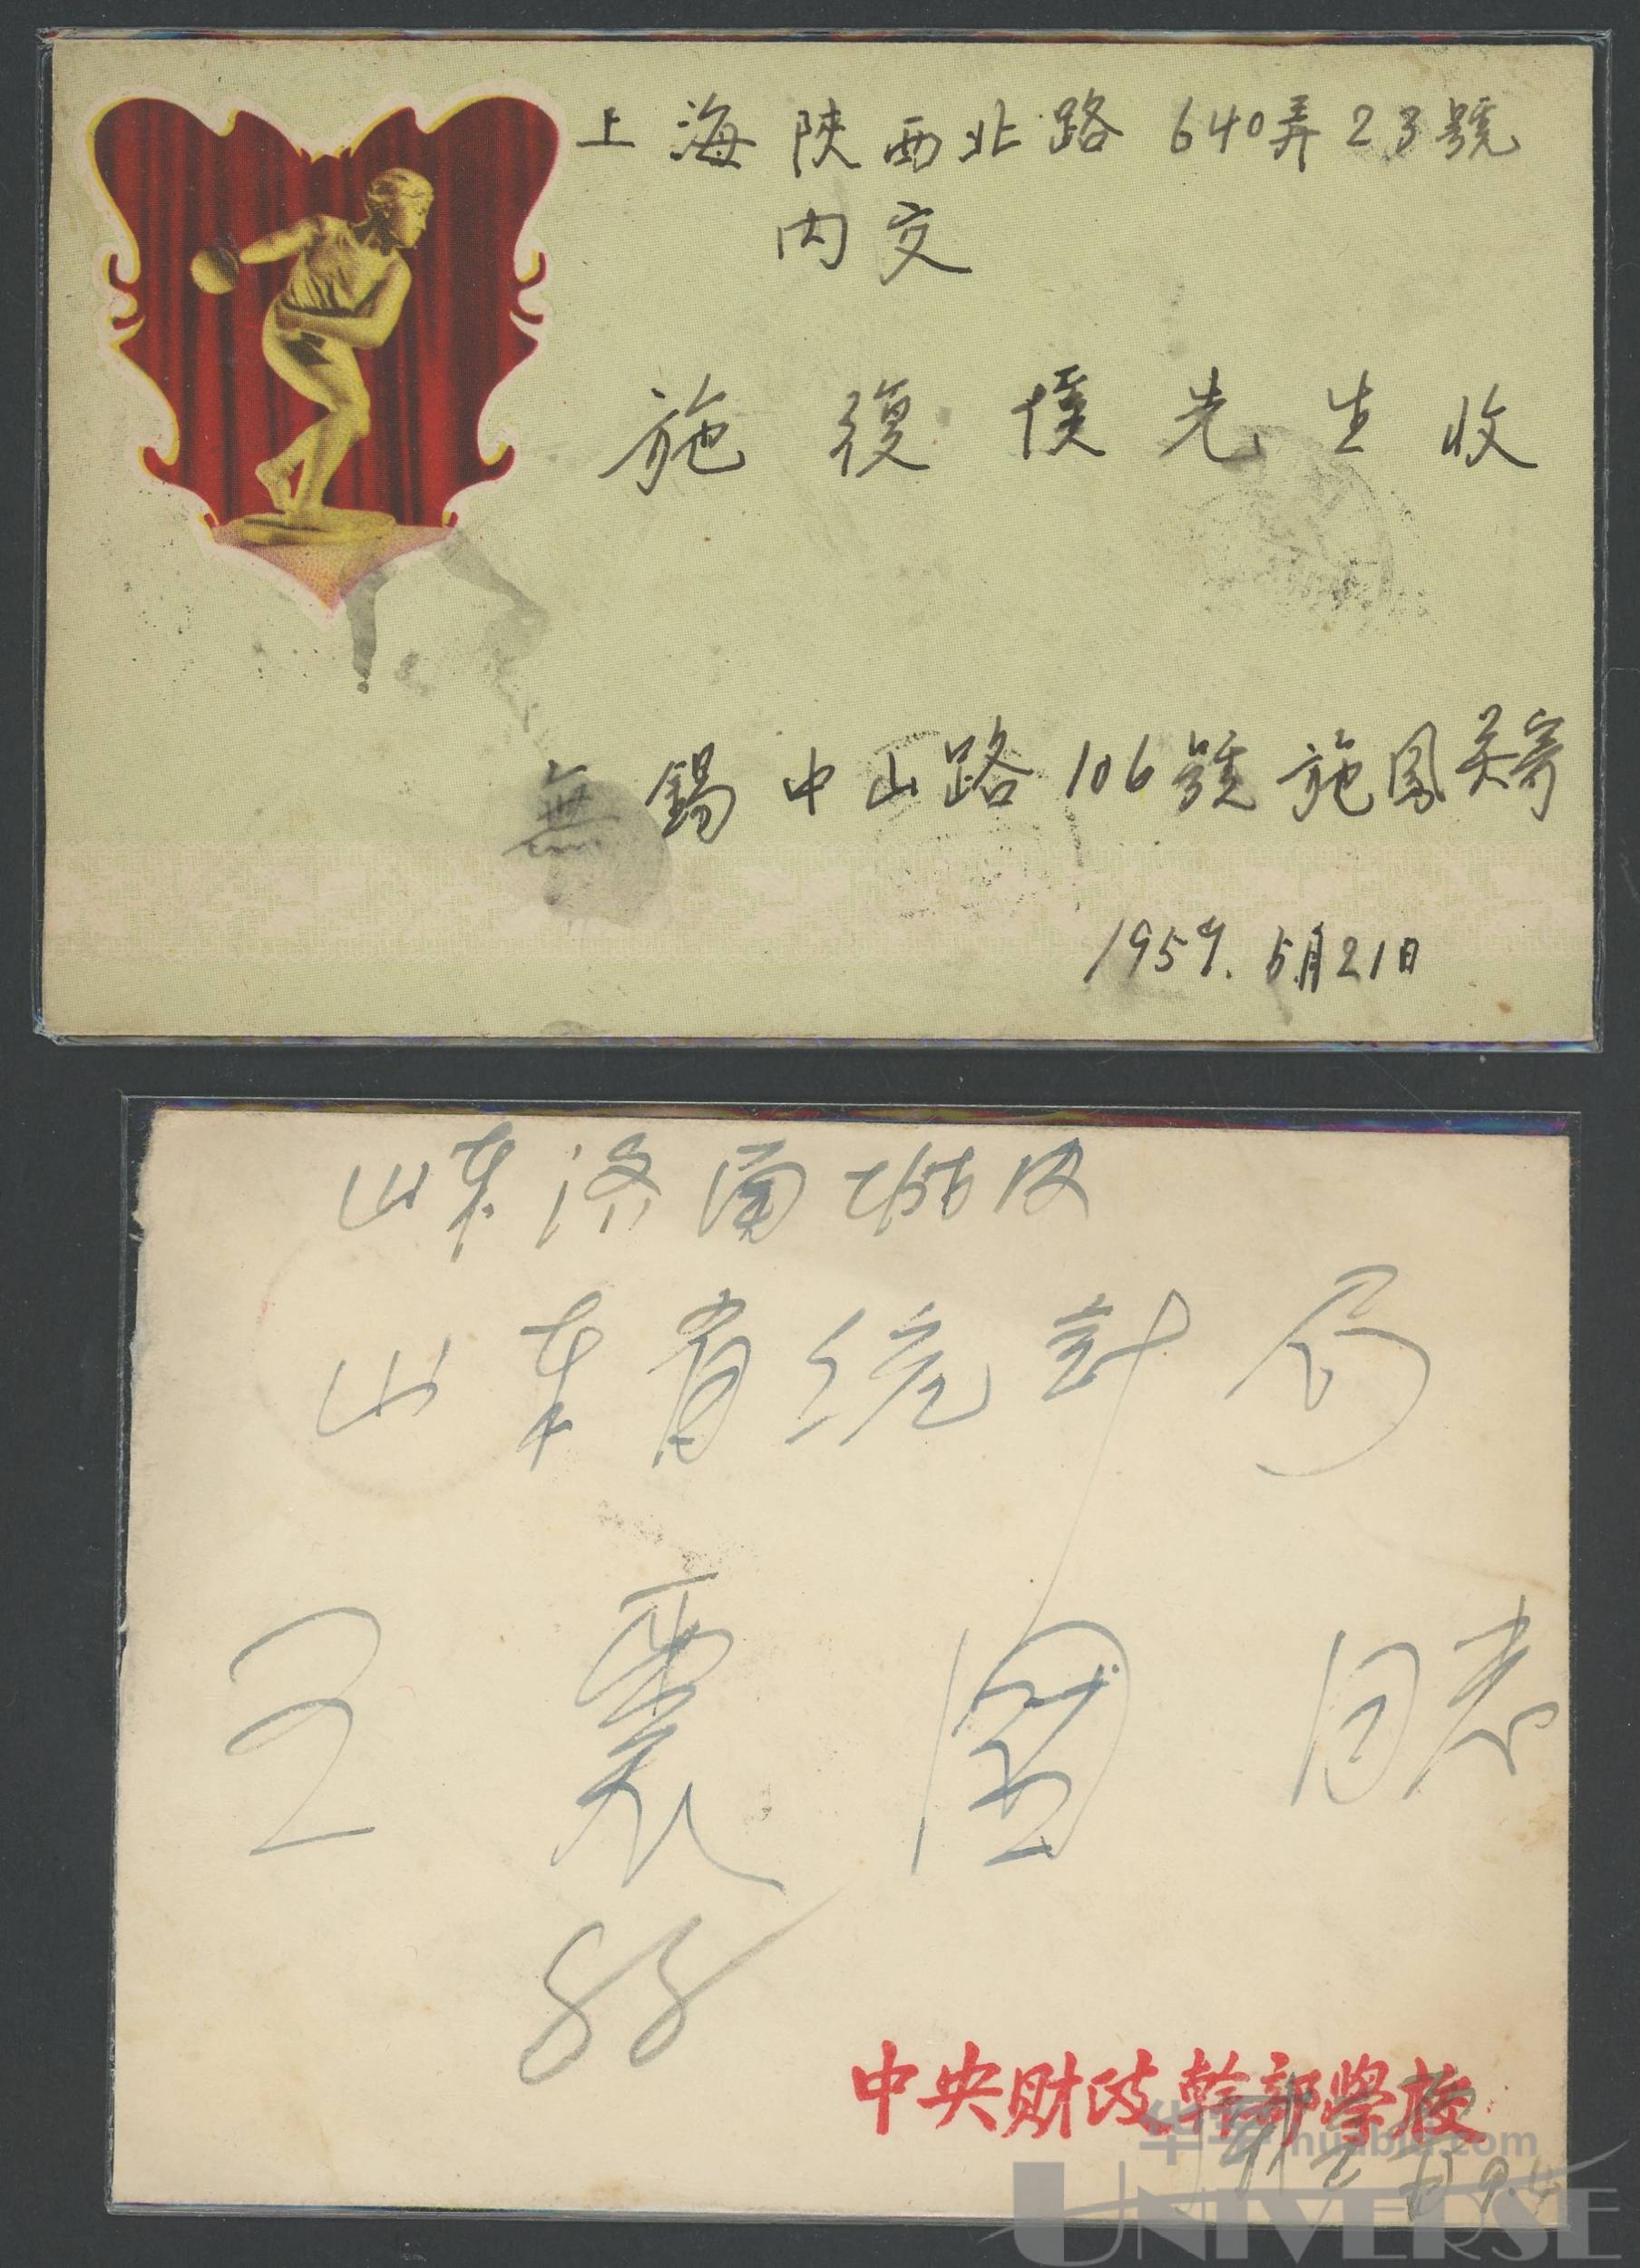 上海陝西北路 640弄23號
内交
施復侯先生收
無錫中山路106號施鳳英寄
1957.5月21日
山东济南
山东省统計局
王震 同志
88
中央财政幹部學校
华宇 huabid.com
9.4
UNIVERSE